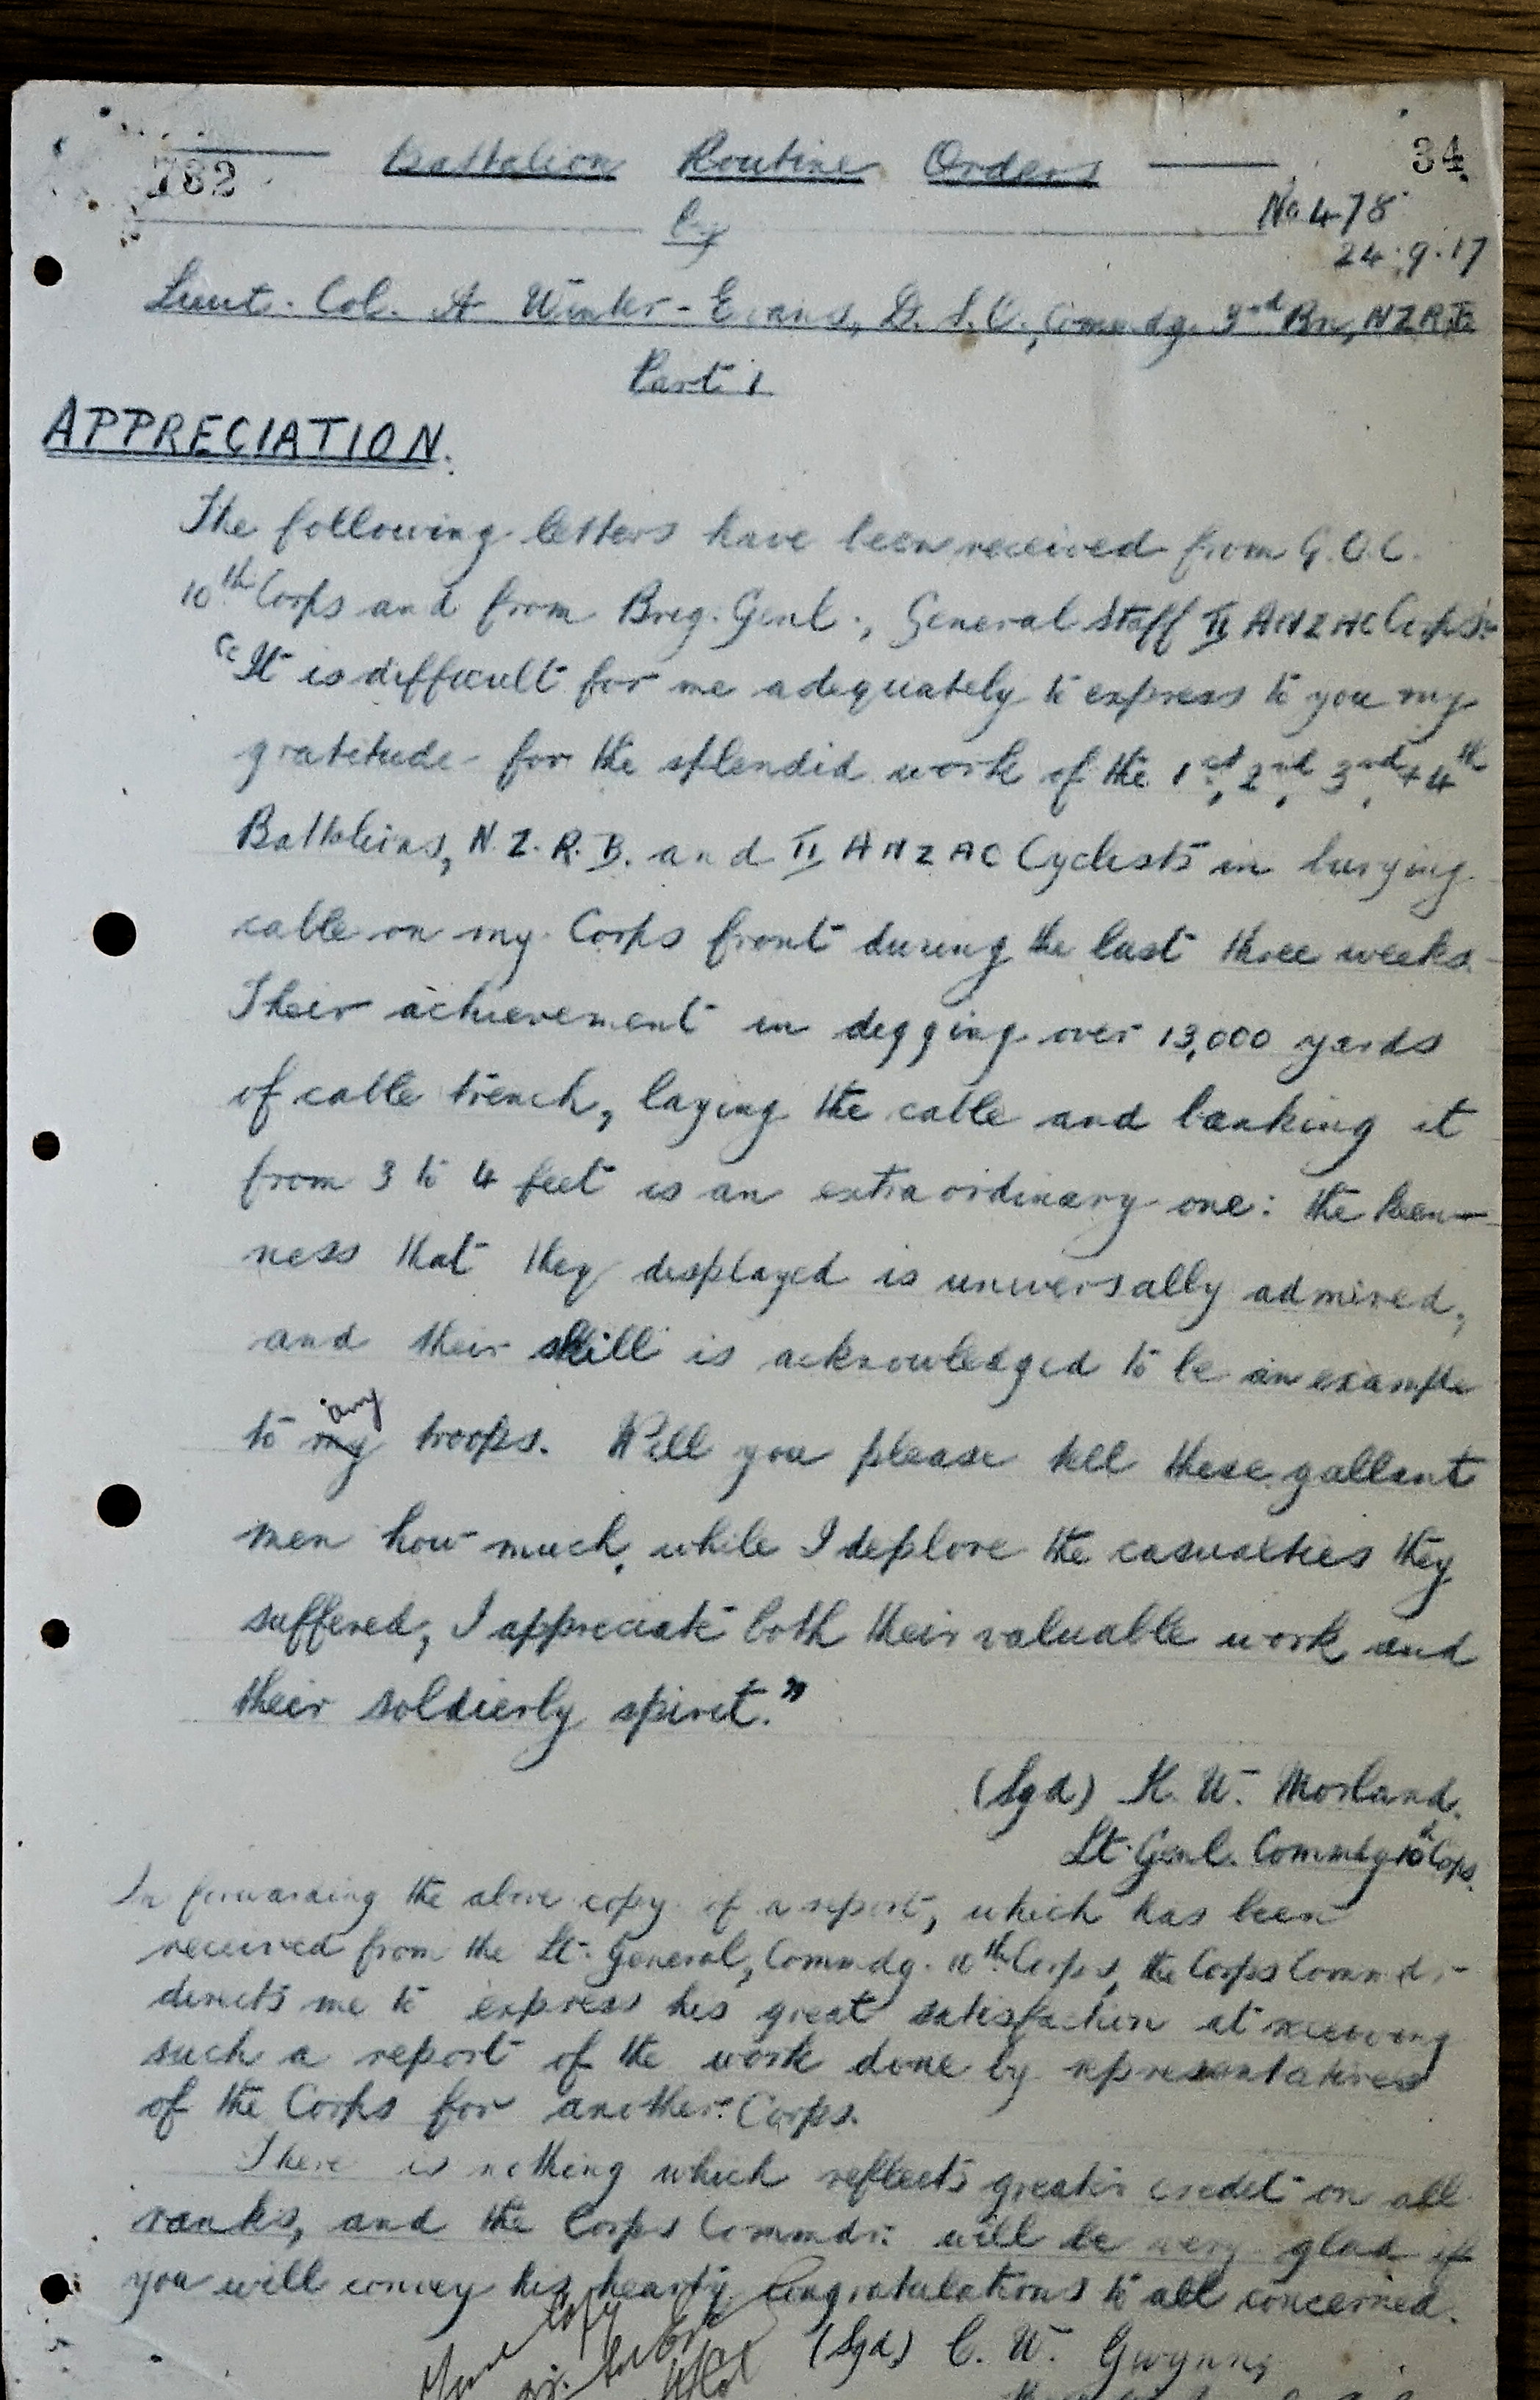 782 Battalion Routine Orders 34.
by No 478
24.9.17
Lieut. Col. A Winter-Evans, D.S.O., Commdg. 3rd Bn, NZRB
Part 1
APPRECIATION.
The following letters have been received from G.O.C.
10th Corps and from Breg. Genl., General Staff II ANZAC Corps:-
"It is difficult for me adequately to express to you my
gratitude for the splendid work of the 1st, 2nd, 3rd, + 4th
Battalions, N.Z.R.B. and II ANZAC Cyclists in burying
cable on my Corps front during the last three weeks.
Their achievement in digging over 13,000 yards
of cable trench, laying the cable and banking it
from 3 to 4 feet is an extraordinary one: the keen-
ness that they displayed is universally admired,
and their skill is acknowledged to be an example
any
to my troops. Will you please tell these gallant
men how much, while I deplore the casualties they
suffered, I appreciate both their valuable work and
their soldierly spirit."
(Sgd) H. W. Morland.
Lt. Genl. Commdg 10th Corps.
In forwarding the above copy of a report, which has been
received from the Lt. General, Commdg. 10th Corps, the Corps Commdr.
directs me to express his great satisfaction at receiving
such a report of the work done by representatives
of the Corps for another Corps.
There is nothing which reflects greater credit on all
ranks, and the Corps Commdr. will be very glad if
you will convey his hearty Congratulations to all concerned.
copy (Sgd) C. W. Gwynn,